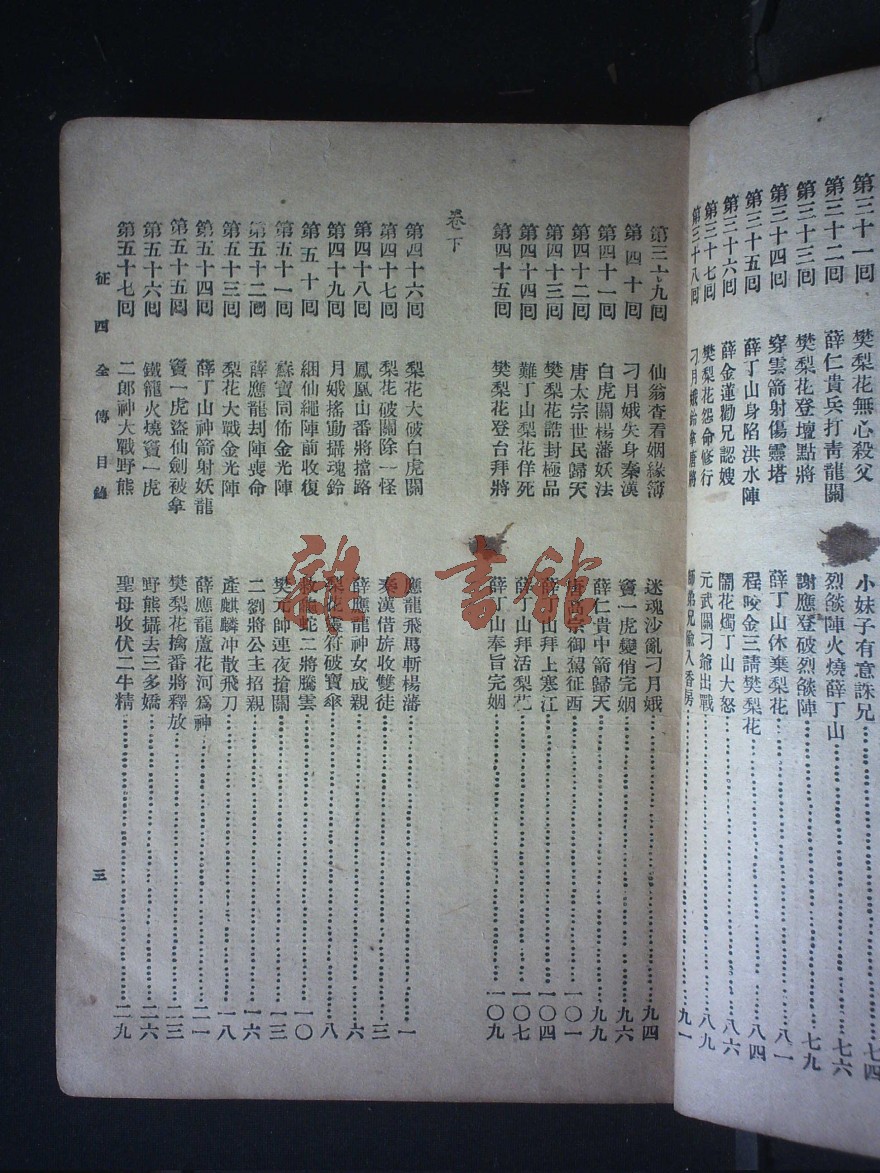 第三十一回 樊梨花無心殺父 小妹子有意誅兄 七四
第三十二回 薛仁貴兵打青龍關 烈燄陣火燒薛丁山 七六
第三十三回 樊梨花登壇點將 謝應登破烈燄陣 七九
第三十四回 穿雲箭射傷靈塔 薛丁山休棄梨花 八一
第三十五回 薛丁山身陷洪水陣 程咬金三請樊梨花 八四
第三十六回 薛金蓮勸兄認嫂 鬧花燭丁山大怒 八六
第三十七回 樊梨花怨命修行 元武關刁爺出戰 八九
第三十八回 刁月娥鈴拿唐將 師弟兄偷入香房 九一
第三十九回 仙翁查看姻緣簿 迷魂沙亂刁月娥 九四
第四十回 刁月娥失身秦漢 竇一虎變俏完姻 九六
第四十一回 白虎關楊藩妖法 薛仁貴中箭歸天 九九
第四十二回 唐太宗世民歸天 唐高宗御駕征西 一〇一
第四十三回 樊梨花誥封極品 薛丁山拜上寒江 一〇四
第四十四回 難丁山梨花佯死 薛丁山拜活梨花 一〇七
第四十五回 樊梨花登台拜將 薛丁山奉旨完姻 一〇九
卷下
第四十六回 梨花大破白虎關 應龍飛馬斬楊藩 一
第四十七回 梨花破關除一怪 秦漢借旂收雙徒 三
第四十八回 鳳凰山番將擋路 薛應龍神女成親 六
第四十九回 月娥搖動攝魂鈴 梨花靈符破寶傘 八
第五十回 綑仙繩陣前收復 蛇二將騰雲 一〇
第五十一回 蘇寶同佈金光陣 樊元帥連夜搶關 一三
第五十二回 薛應龍刦陣喪命 二劉將公主招親 一六
第五十三回 梨花大戰金光陣 產麒麟冲散飛刀 一八
第五十四回 薛丁山神箭射妖龍 薛應龍蘆花河爲神 二一
第五十五回 竇一虎盜仙劍被拿 樊梨花擒番將釋放 二三
第五十六回 鐵龍火燒竇一虎 野熊攝去三多嬌 二六
第五十七回 二郎神大戰野熊 聖母收伏二牛精 二九
征四全傳目錄 三
雜·書館